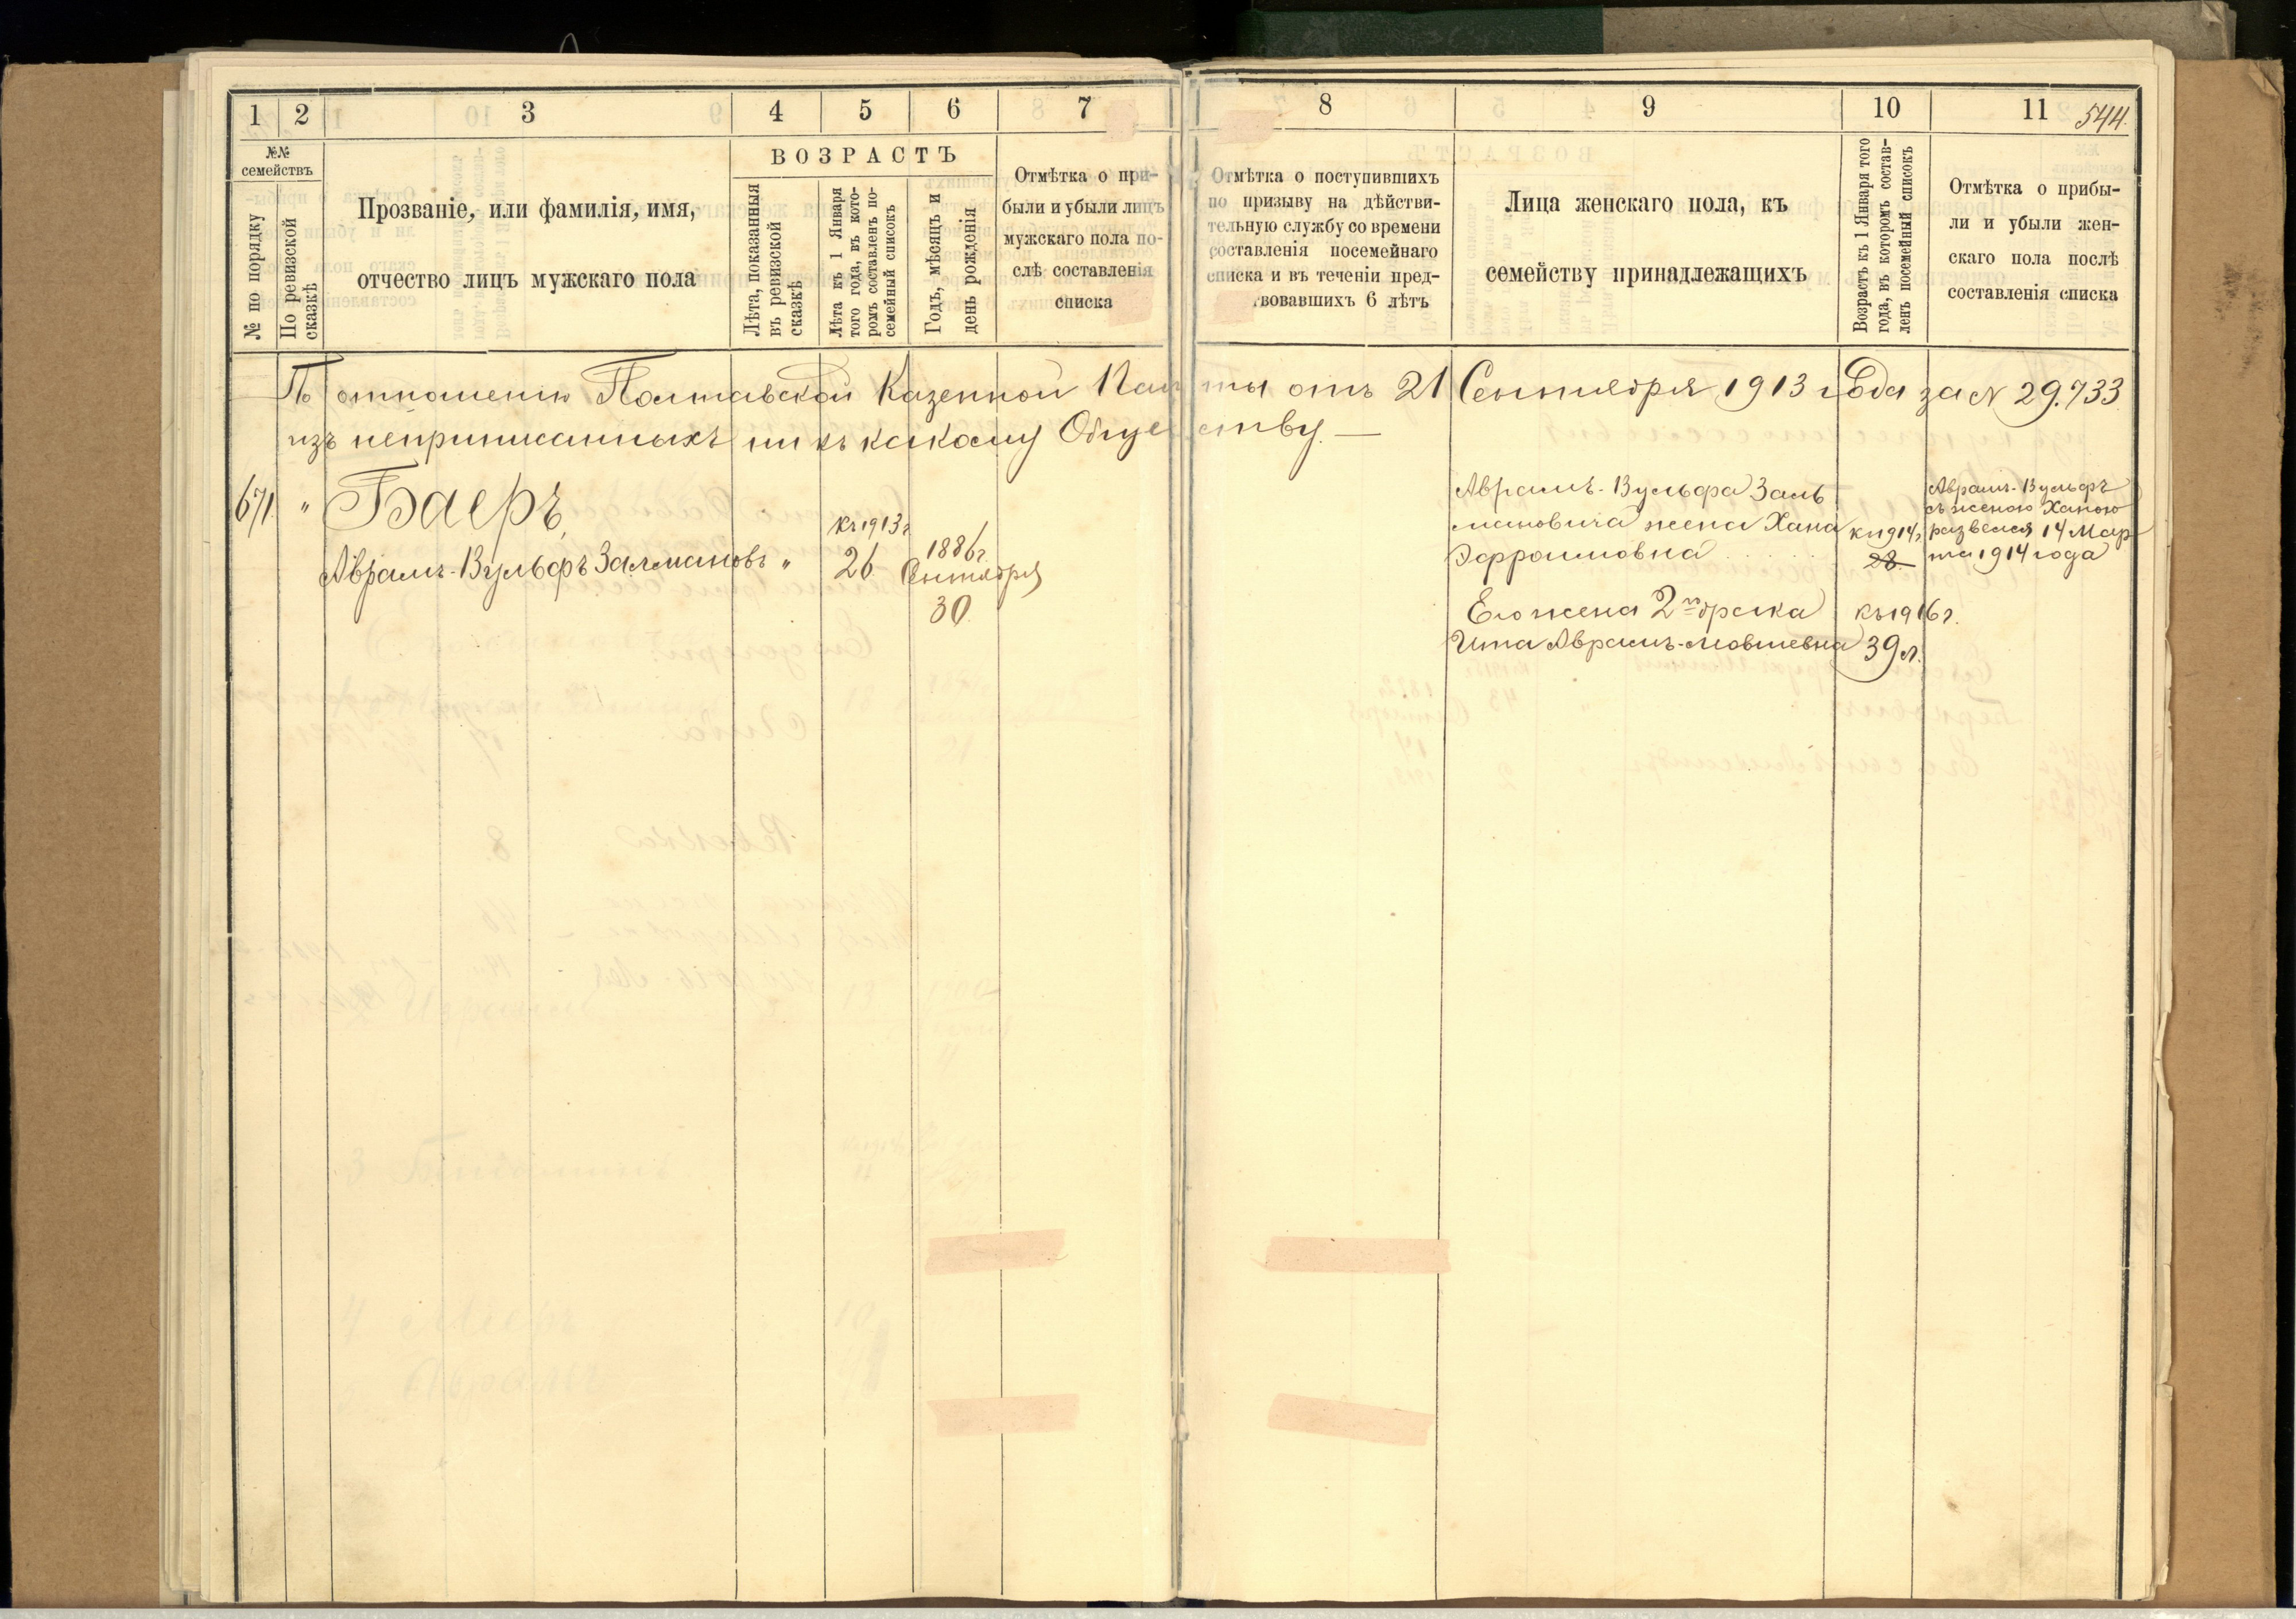 1 2 3 4 5 6 7 8 9 10 11 544.
№№
семействъ
№ по порядку
По ревизской
сказкѣ
Прозваніе, или фамилія, имя,
отчество лицъ мужскаго пола
ВОЗРАСТЪ
Лѣта, показанныя
въ ревизской
сказкѣ
Лѣта къ 1 Января
того года, въ кото-
ромъ составленъ по-
семейный списокъ
Годъ, мѣсяцъ и
день рожденія
Отмѣтка о при-
были и убыли лицъ
мужскаго пола по-
слѣ составленія
списка
Отмѣтка о поступившихъ
по призыву на дѣйстви-
тельную службу со времени
составленія посемейнаго
списка и въ теченіи пред-
твовавшихъ 6 лѣтъ
Лица женскаго пола, къ
семейству принадлежащихъ
Возрастъ къ 1 Января того
года, въ которомъ состав-
ленъ посемейный списокъ
Отмѣтка о прибы-
ли и убыли жен-
скаго пола послѣ
составленія списка
По отношенію Полтавской Казенной Палаты отъ 21 Сентября 1913 года за № 29.733
изъ неприписанныхъ ни къ какому Обществу. —
671. " Баеръ,
къ 1913 г.
Аврамъ-Вульфъ Залмановъ " 26
1886 г.
Сентября
30.
Аврамъ-Вульфа Заль
мановича жена Хана
Эфроимовна . . . . .
къ 1914 г.
28.
Аврамъ-Вульфъ
съ женою Ханою
развелся 14 Мар
та 1914 года
Его жена 2го брака къ 1916 г.
Ита Аврамъ-Мовшевна 39 л.